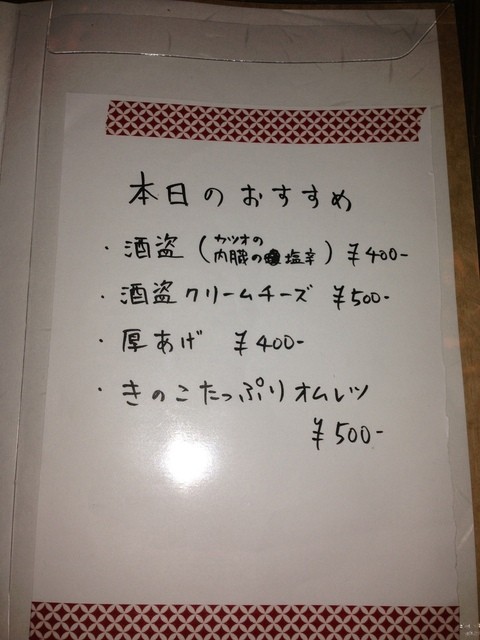 本日のおすすめ
・酒盗(カツオの内臓の塩辛) ¥400-
・酒盗クリームチーズ ¥500-
・厚あげ ¥400-
・きのこたっぷりオムレツ
¥500-